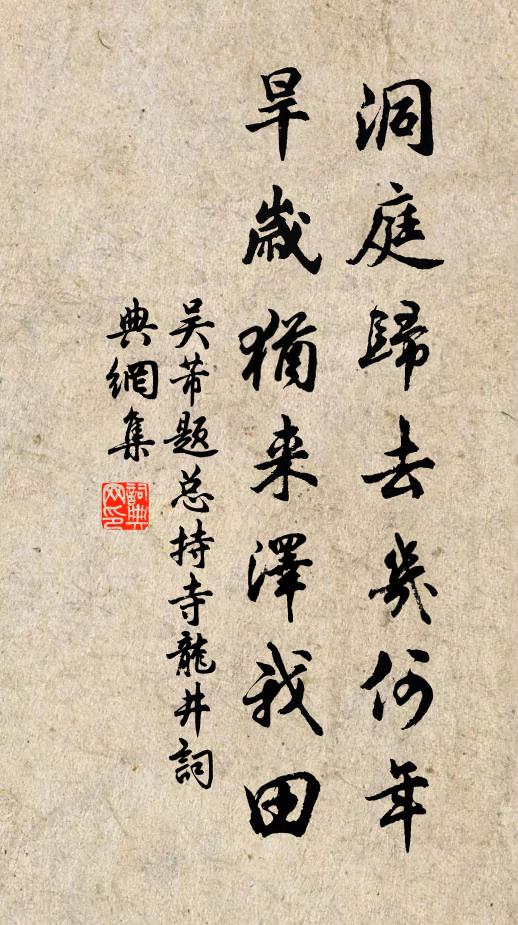 洞庭歸去幾何年
旱歲猶来澤我田
吴芾題总持寺龍井詞
典網集
詞典
网印